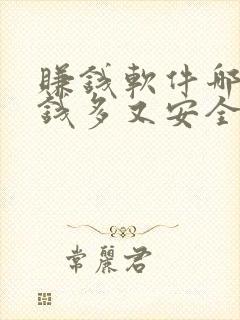 賺錢軟件哪
錢多又安全
常麗君